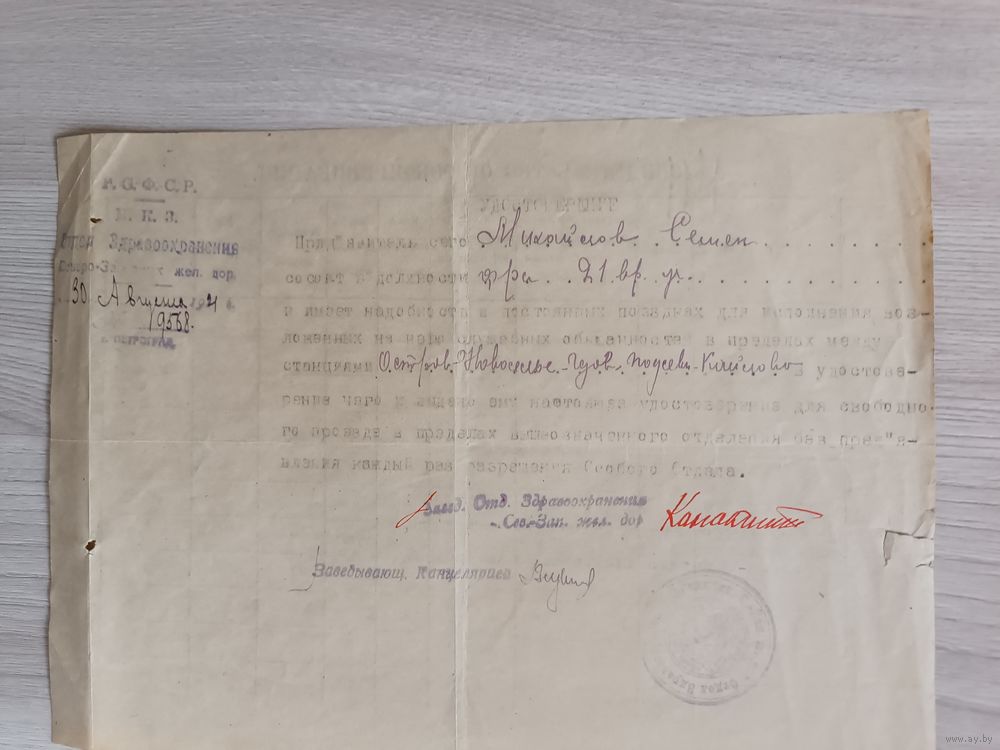 Р. С. Ф. С. Р.
Н. К. З.
Отдел Здравоохранения
Северо-Западных жел. дор.
30 Августа 1921 г.
г. ПЕТРОГРАД.
УДОСТОВЕРЕНИЕ
Пред'явитель сего Михайлов Семен
состоит в должности вр. уч.
и имеет надобность в постоянных поездках для исполнения воз-
ложенных на него служебных обязанностей в пределах между
станциями Остров-Новоселье-Гдов В удостове-
рение чего и выдано ему настоящее удостоверение для свободно-
го проезда в пределах вышеозначенного отделения без пред"яв-
ления каждый раз разрешения Особого Отдела.
Завед. Отд. Здравоохранения
Сев.-Зап. жел. дор
Заведывающ. Канцелярией
Отдел Здра
www.ay.by